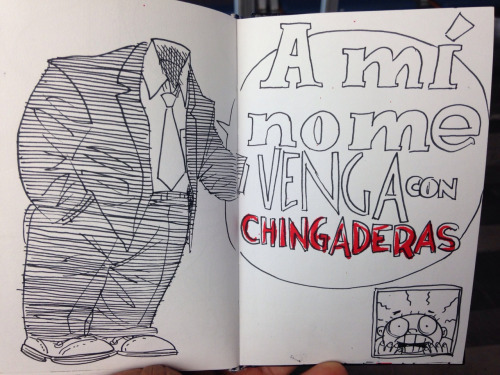 A mí
no me
VENGA CON
CHINGADERAS